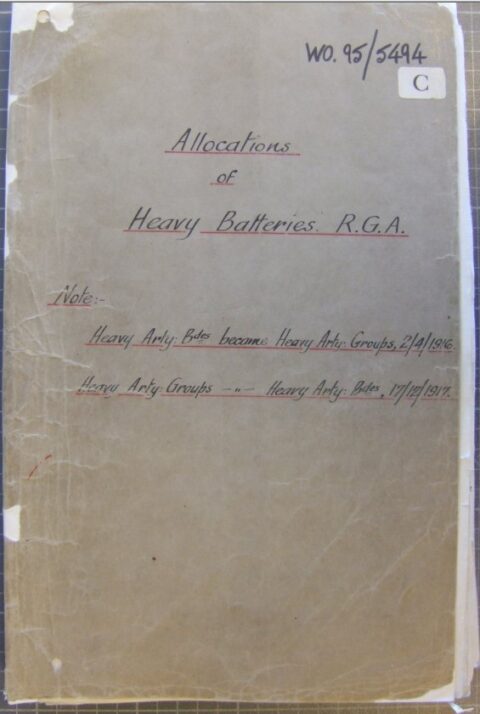 WO. 95/5494
C
Allocations
of
Heavy Batteries. R.G.A.
Note:-
Heavy Arty: Bdes became Heavy Arty: Groups, 2/4/1916.
Heavy Arty: Groups -"- Heavy Arty: Bdes, 17/12/1917.